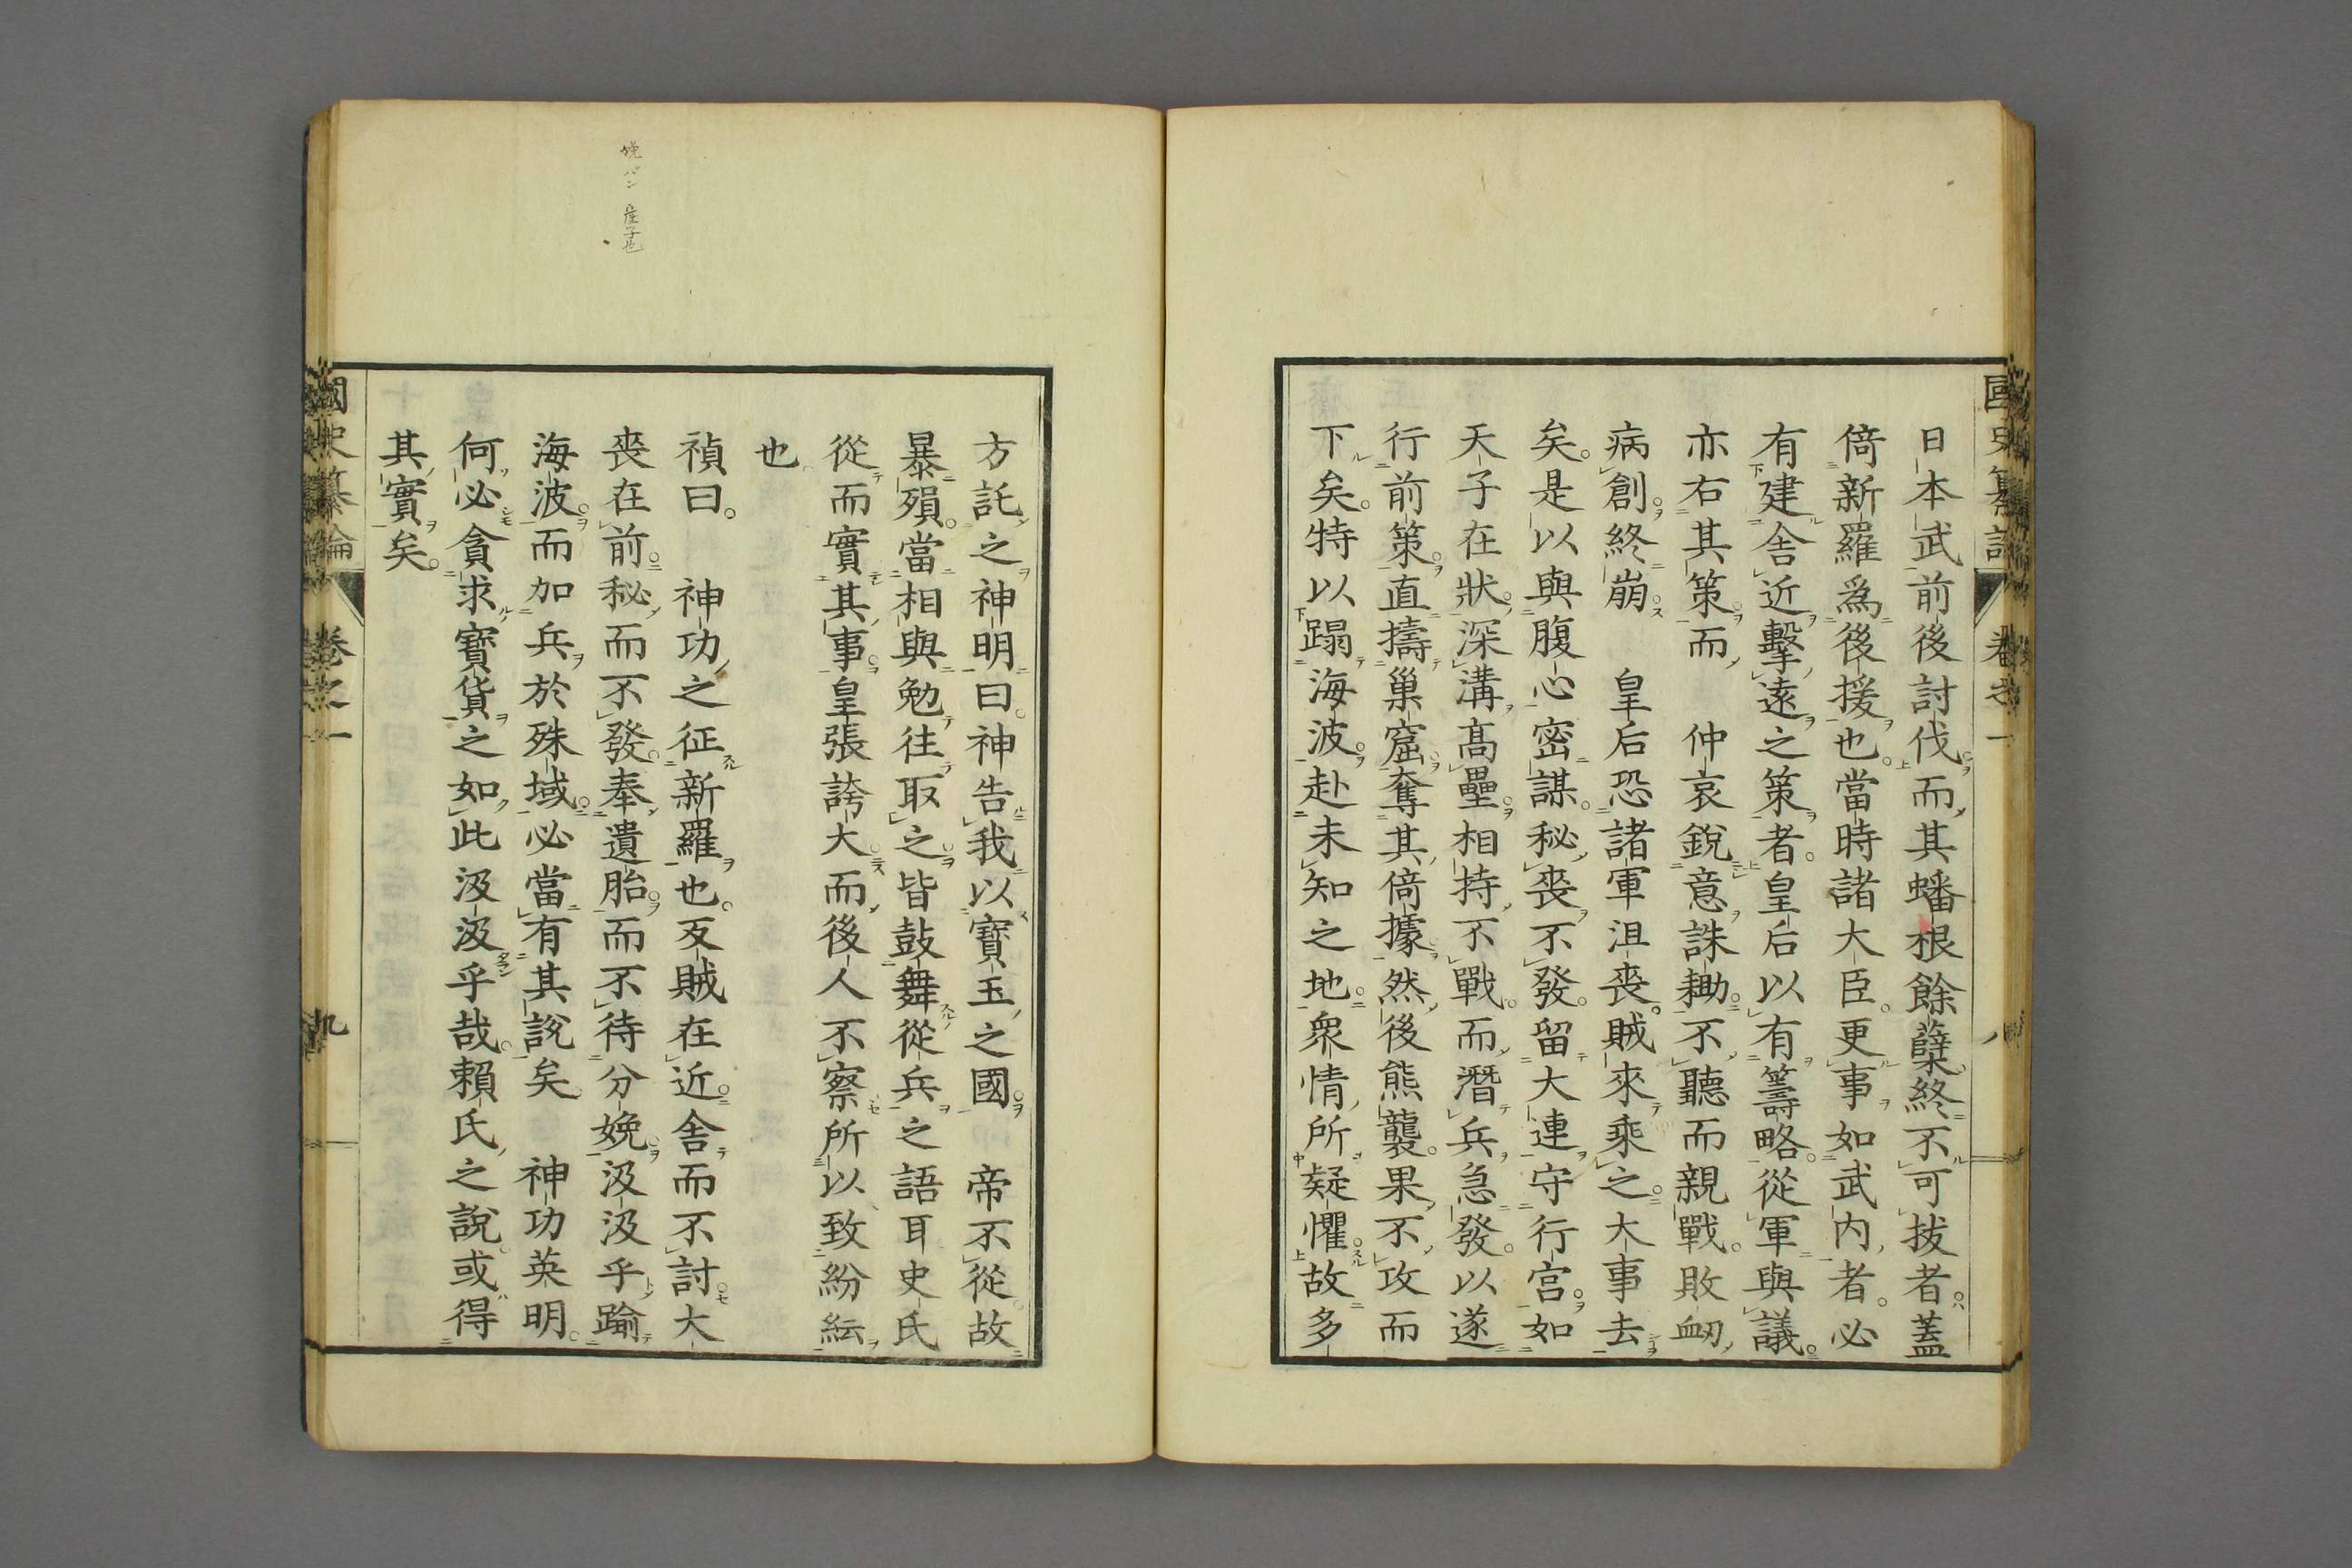 日本武前後討伐而其蟠根餘蘖終不可拔者蓋
倚新羅爲後援也當時諸大臣更事如武內者必
有建舍近擊遠之策者皇后以有籌略從軍與議
亦右其策而　仲哀銳意誅耡不聽而親戰敗衂
病創終崩　皇后恐諸軍沮喪賊來乘之大事去
矣是以與腹心密謀秘喪不發留大連守行宮如
天子在狀深溝高壘相持不戰而潛兵急發以遂
行前策直擣巢窟奪其倚據然後熊襲果不攻而
下矣特以蹋海波赴未知之地衆情所疑懼故多
方託之神明曰神告我以寶玉之國　帝不從故
暴殞當相與勉往取之皆鼓舞從兵之語耳史氏
從而實其事皇張誇大而後人不察所以致紛紜
也
禎曰　神功之征新羅也亙賊在近舍而不討大
喪在前秘而不發奉遺胎而不待分娩汲汲乎踰
海波而加兵於殊域必當有其說矣　神功英明
何必貪求寶貨之如此汲汲乎哉賴氏之說或得
其實矣
國史纂論　卷之一　九
娩バン　產子也